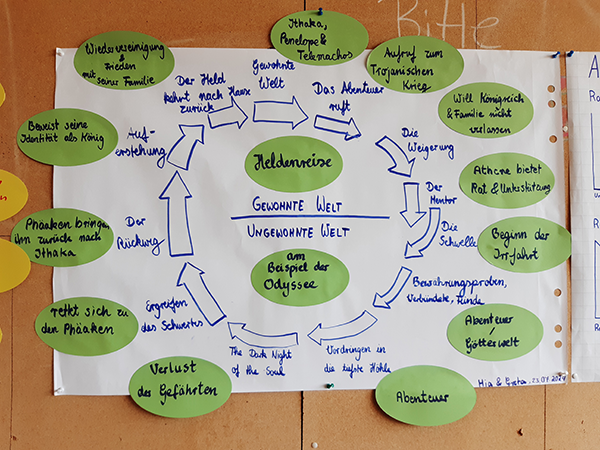 Bitte
Ithaka,
Penelope &
Telemachos
Aufruf zum
Trojanischen
Krieg
Will Königreich
& Familie nicht
verlassen
Athene bietet
Rat & Unterstützung
Beginn der
Irrfahrt
Abenteuer
/
Götterwelt
Abenteuer
Verlust
des Gefährten
rettet sich zu
den Phäaken
Phäaken bringen
ihn zurück nach
Ithaka
Beweist seine
Identität als König
Wiedervereinigung
&
Frieden
mit seiner Familie
Gewohnte
Welt
Das Abenteuer
ruft
Die
Weigerung
Der
Mentor
Die
Schwelle
Bewährungsproben,
Verbündete, Feinde
Vordringen in
die tiefste Höhle
The Dark Night
of the Soul
Ergreifen
des Schwertes
Der
Rückweg
Auf-
erstehung
Der Held
kehrt nach Hause
zurück
Heldenreise
GEWOHNTE WELT
UNGEWOHNTE WELT
am
Beispiel der
Odyssee